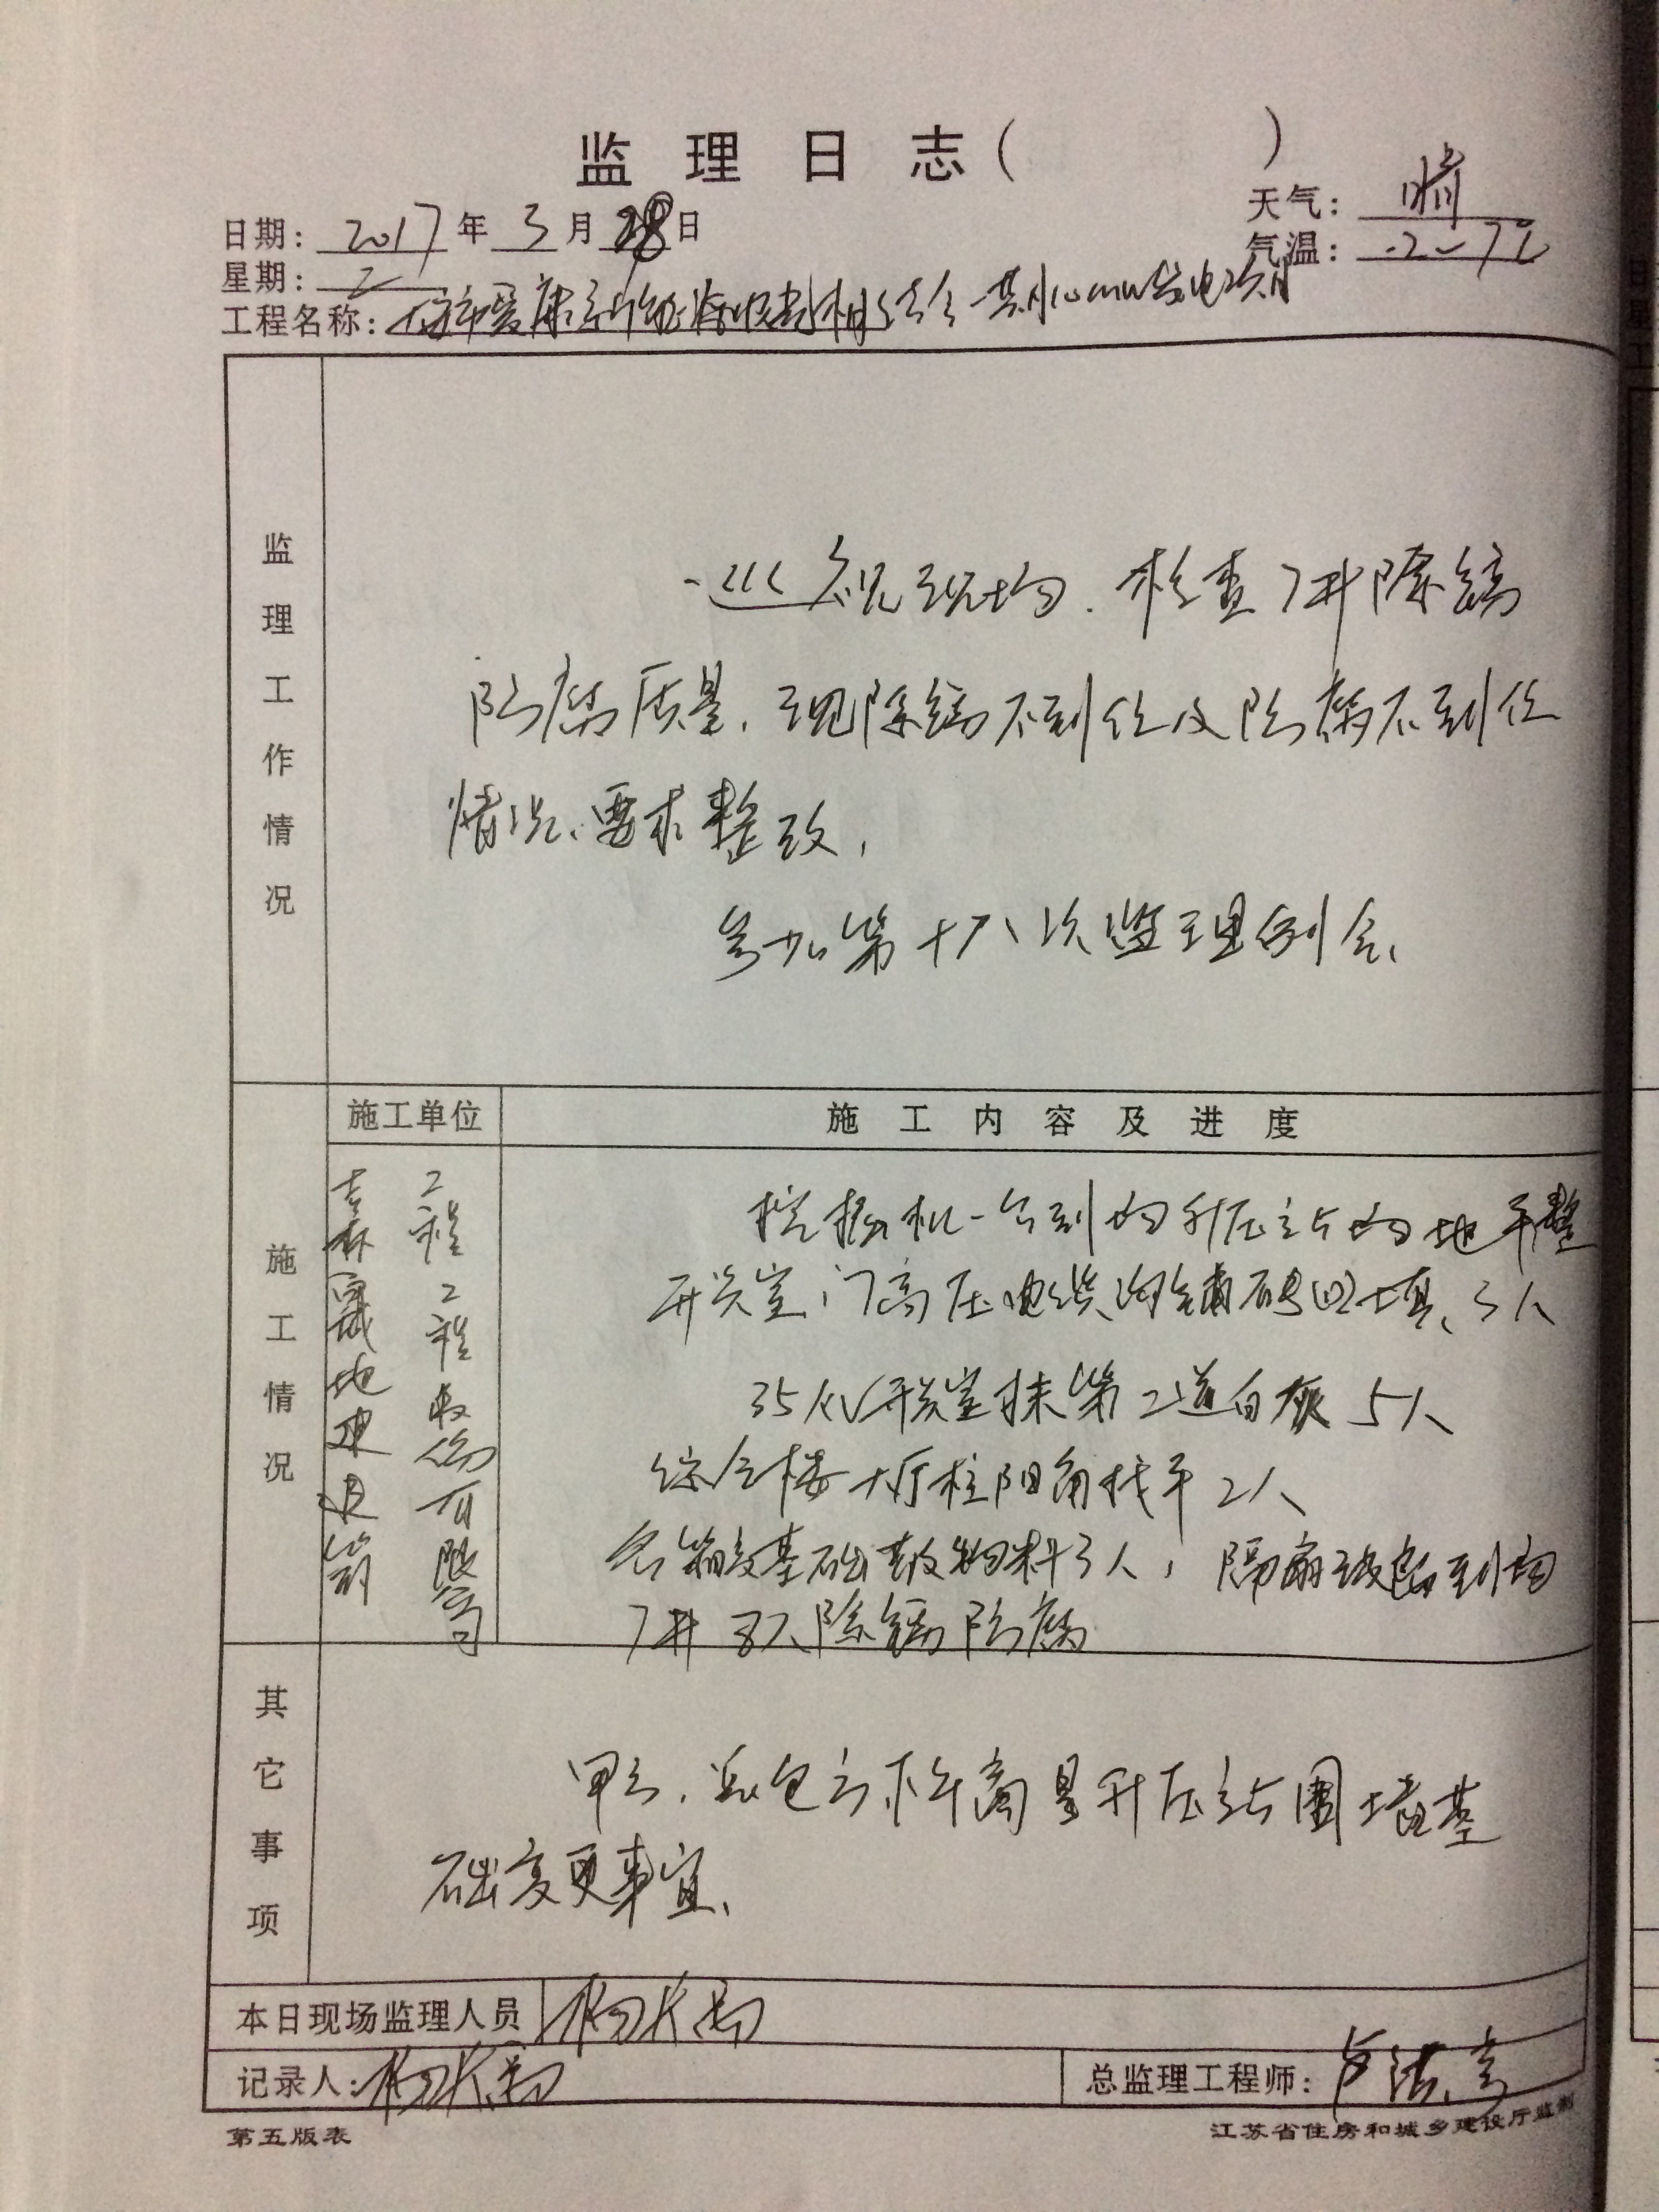 监理日志（ ）
日期：2017年3月28日
天气：晴
星期：二
气温：-2~7℃
工程名称：爱康 相结合一期10MW发电项目
监理工作情况
巡视现场．检查7#除锈
防腐质量，现除锈不到位及防腐不到位
情况、要求整改，
参加第十八次监理例会、
施工单位
施工内容及进度
施工情况
吉林 地建设
工程 有限公司
挖掘机一台到场升压站场地平整
开关室门高压电缆沟铺砖回填、3人
35KV开关室抹第2道白灰 5人
综合楼大厅柱阳角找平 2人
各箱变基础 物料3人， 到场
7# 8人除锈防腐
其它事项
甲方，总包方下午商量升压站围墙基
础变更事宜、
本日现场监理人员
记录人：
总监理工程师：
第五版表
江苏省住房和城乡建设厅监制